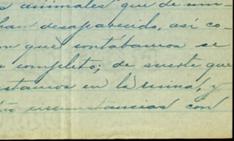 animales que de un
han desaparecido, así co-
n que contábamos se
completo; de suerte que
estamos en la ruina, y
circunstancias con